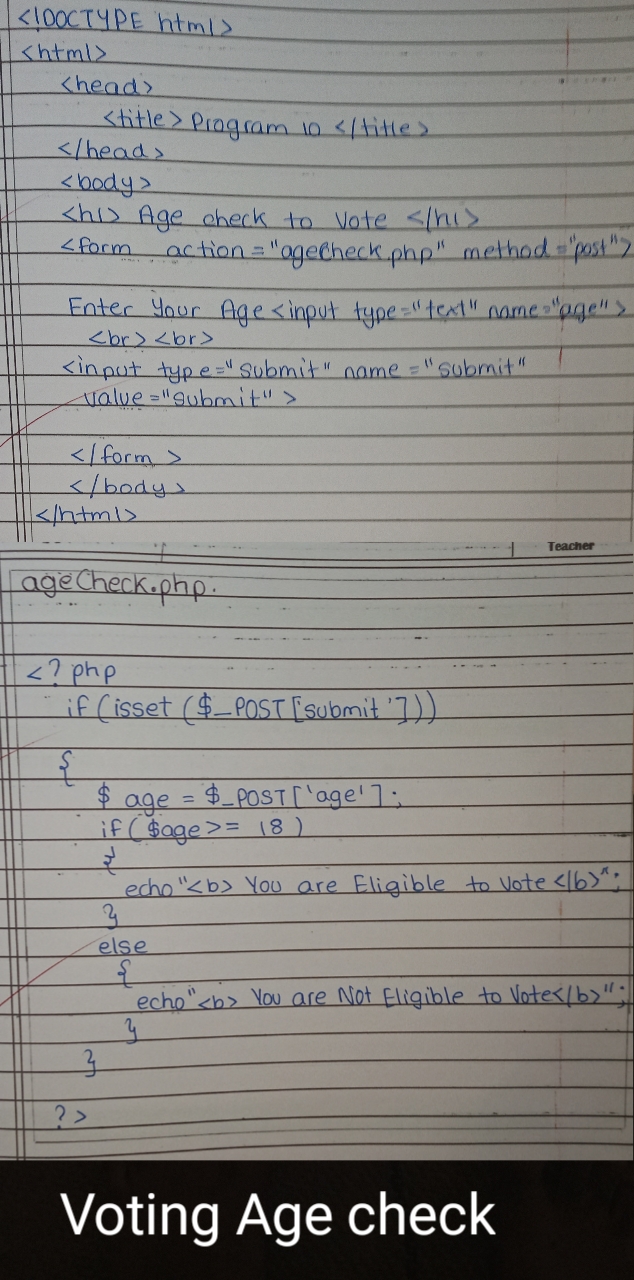 <!DOCTYPE html>
<html>
<head>
<title> Program 10 </title>
</head>
<body>
<h1> Age check to Vote </h1>
<form action="ageCheck.php" method="post">
Enter Your Age <input type="text" name="age">
<br><br>
<input type="submit" name="submit"
value="submit">
</form>
</body>
</html>
Teacher
ageCheck.php.
<?php
if(isset($_POST[submit']))
{
$ age = $_POST['age'];
if($age>= 18)
{
echo"<b> You are Eligible to Vote </b>";
}
else
{
echo"<b> You are Not Eligible to Vote</b>";
}
}
?>
Voting Age check